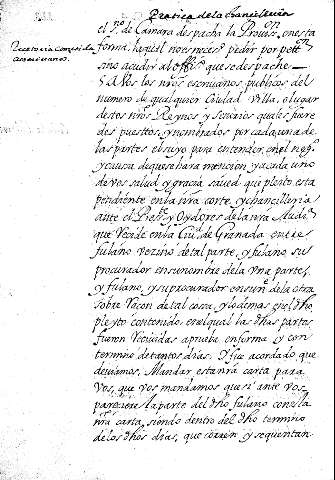 Pratica de la chancilleria
el s.no de Camara despacha la Provis.on en esta
Receptoria cometida a escriuanos.
forma, la qual no es neces.o pedir por pett.on
sino acudir al offi.o que se despache
A Vos los nros escriuanos publicos del
numero de qualquier Ciudad Villa, o lugar
destos nros Reynos y Señorios quales fuere
des puesttos, y nombrados por cada una de
las partes el suyo para entender, en el neg.o
y causa de que se hara mencion, y a cada uno
de vos salud y gracia saued que pleito esta
pendiente en la nra corte, y chancilleria
ante el Pres.te y Oydores de la nra Audi.a
que Reside en la Ciu.d de Granada entre
fulano vezino de tal parte, y fulano, sus
procurador en su nombre de la Vna parte,
y fulano, y su procurador en su n.e de la otra
sobre Racon de tal cosa, y lo demas en el dho
pleyto contenido en el qual las dhas partes
fueron Reciuidas a prueba en forma y con
termino de tantos dias. I fue acordado que
deuiamos, Mandar esta nra carta para
Vos, que vos mandamos que si ante vos
pareciere la parte del dho fulano con esta
nra carta, siendo dentro del dho termino
de los dhos dias, que corren y se quentan